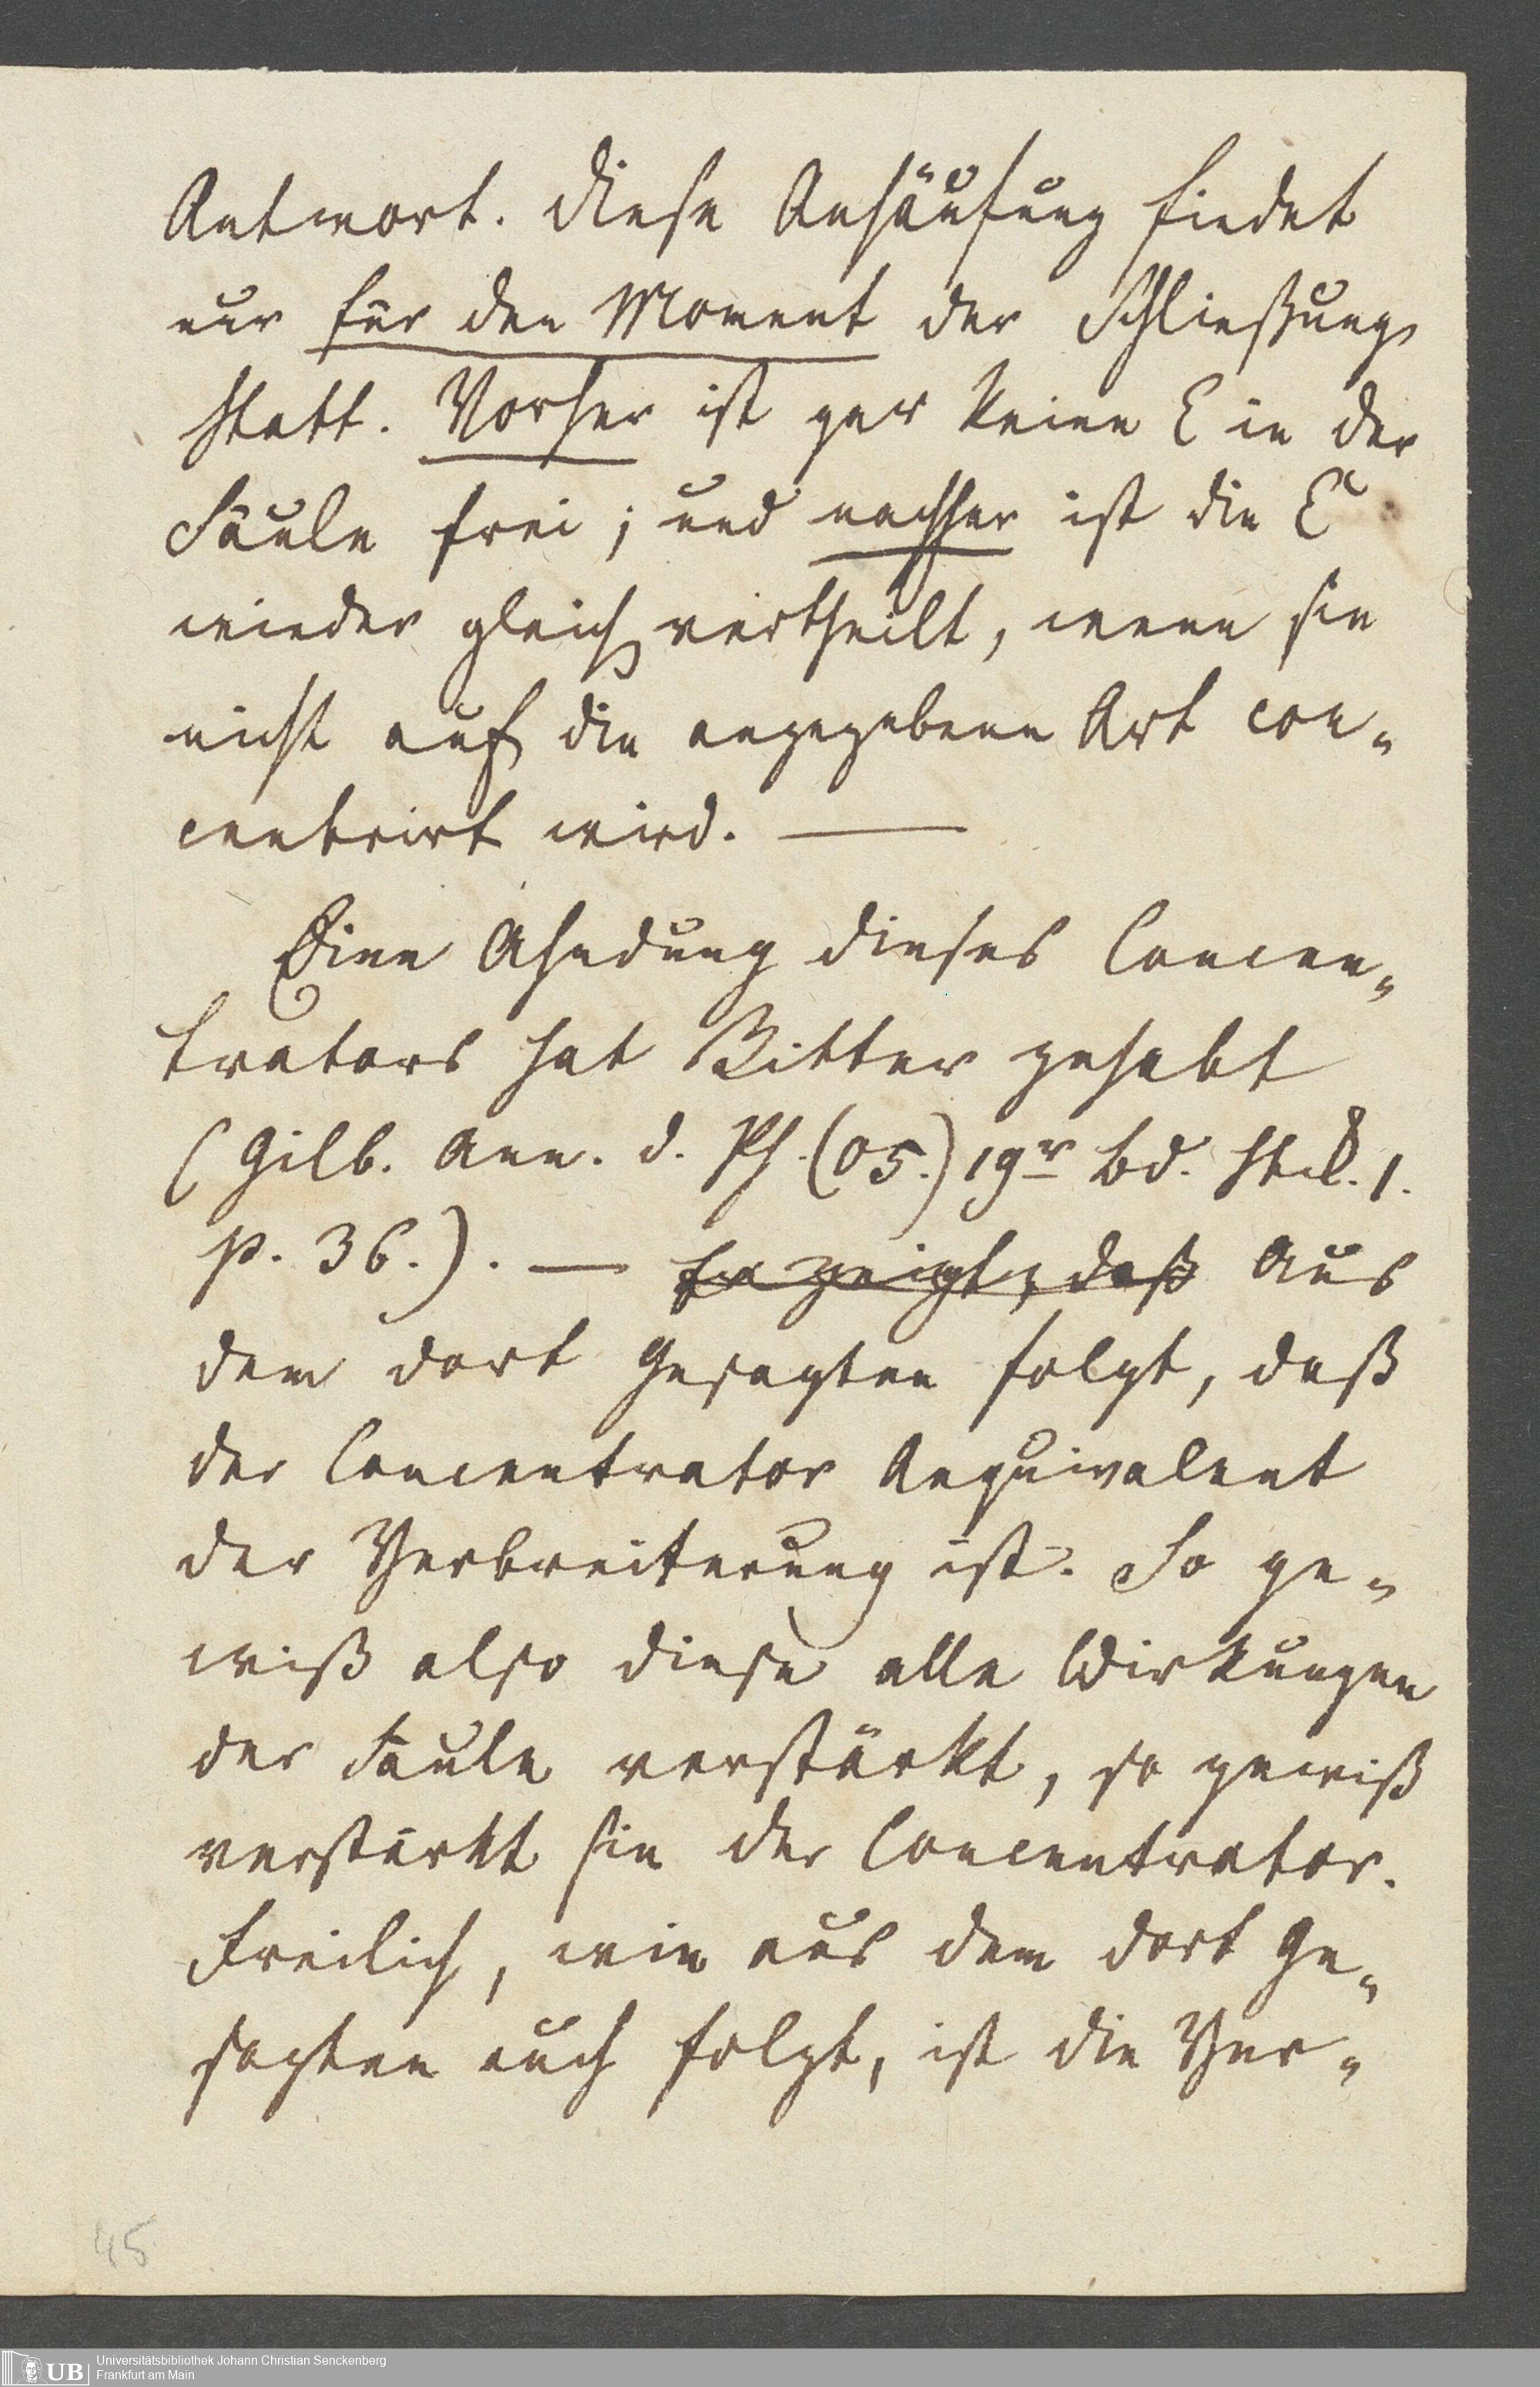 Antwort. Diese Anhäufung findet
nur für den Moment der Schließung
statt. Vorher ist gar keine E in der
Säule frei; und nachher ist die E
wieder gleich vertheilt, wenn sie
nicht auf die angegebene Art con-
centrirt wird. —
Eine Ahndung dieses Concen-
trators hat Ritter gehabt
(Gilb. Ann. d. Ph. (05.) 19r Bd. Stck. 1.
p. 36.). — Er zeigt, daß Aus
dem dort Gesagten folgt, daß
der Concentrator Aequivalent
der Verbreiterung ist. So ge-
wiß also diese alle Wirkungen
der Säule verstärkt, so gewiß
verstärkt sie der Concentrator.
Freilich, wie aus dem dort Ge-
sagten auch folgt, ist die Ver-
45
UB
Universitätsbibliothek Johann Christian Senckenberg
Frankfurt am Main